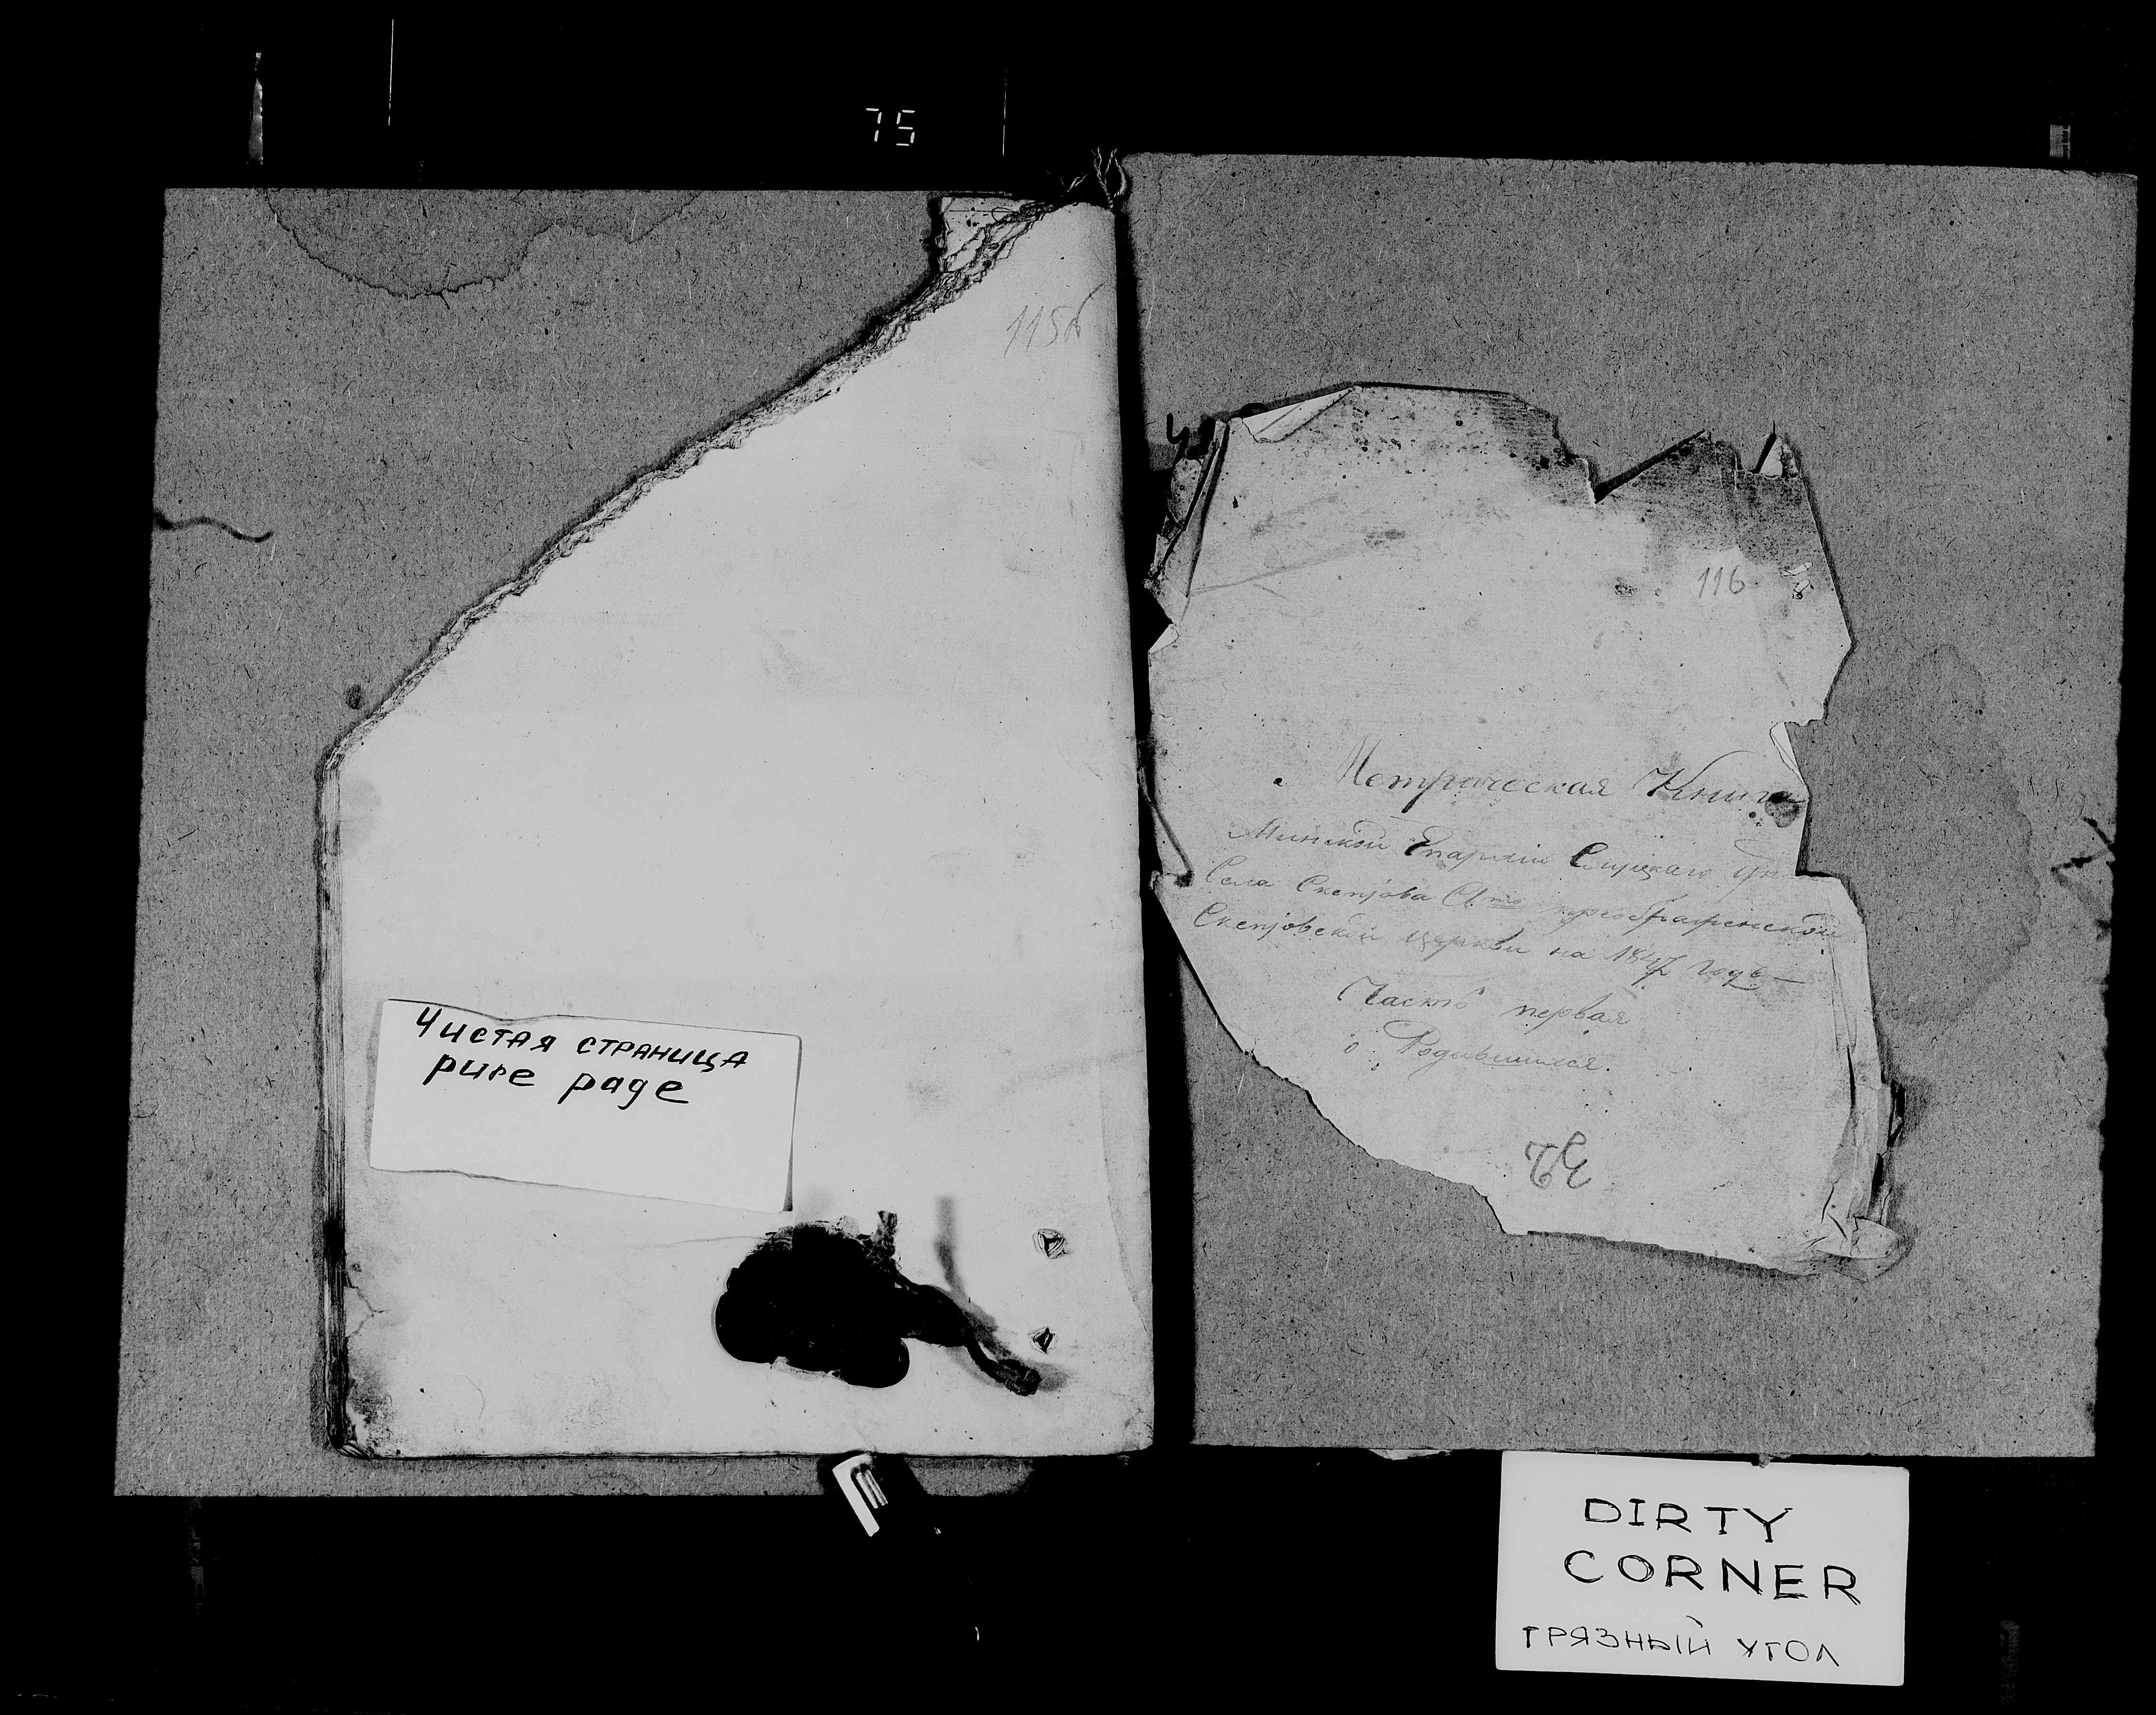 75
115б
Чистая страница
pure page
116
Метрическая Книга
Минской Епархіи Слуцкаго
Села Скепіова Сто преображенской
Скепіовской церкви на 1847 годъ —
Часть первая
о Родившихся.
DIRTY
CORNER
ГРЯЗНЫЙ УГОЛ